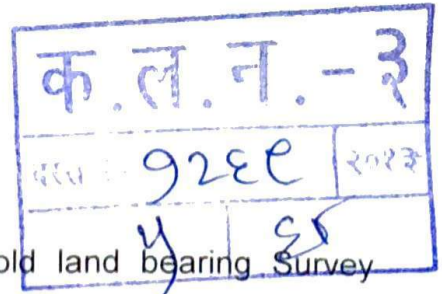 क.ल.न. - ३
१२६९ २०२३
५
old land bearing Survey